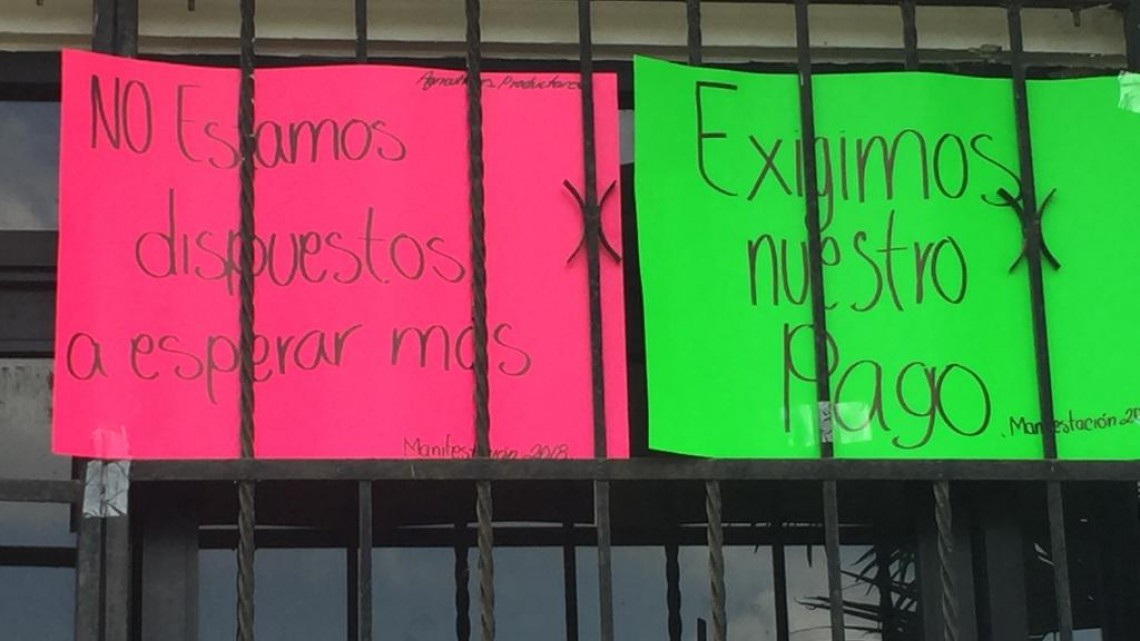 Agricultores Productores
NO Estamos
dispuestos
a esperar mas
Manifestación 2018.
Exigimos
nuestro
Pago
Manifestación